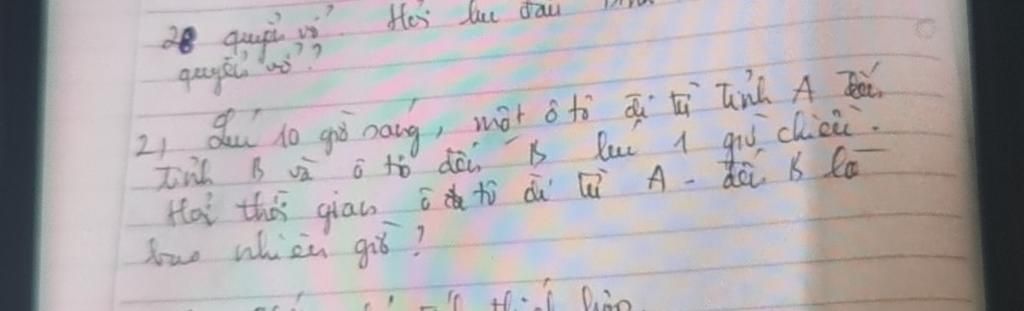 28 quyển vở. Hỏi lúc đầu
quyển vở?
2, Lúc 10 giờ sáng, một ô tô đi từ tỉnh A đến
tỉnh B và ô tô đến B lúc 1 giờ chiều.
Hỏi thời gian ô tô đi từ A - đến B là
bao nhiêu giờ?